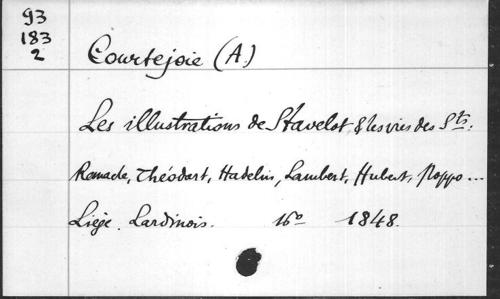 93
183
2
Courtejoie (A.)
Les illustrations de Stavelot & les vies des Sts:
Ramacle, Théodart, Hadelin, Lambert, Hubert, Poppo...
Liège. Lardinois. 16o 1848.